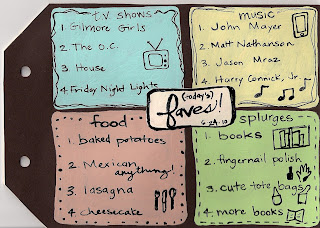 t.v. shows
1. Gilmore Girls
2. The O.C.
3. House
4. Friday Night Lights
music
1. John Mayer
2. Matt Nathanson
3. Jason Mraz
4. Harry Connick, Jr.
(today's)
faves!
6-24-10
food
1. baked potatoes
2. Mexican
anything!
3. lasagna
4. cheesecake
splurges
1. books
2. fingernail polish
3. cute tote bags
4. more books